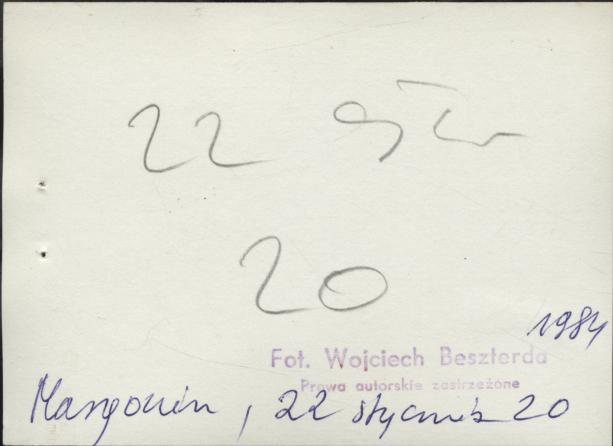 22
20
1984
Fot. Wojciech Beszterda
Prawa autorskie zastrzeżone
Margonin, 22 stycznia 20